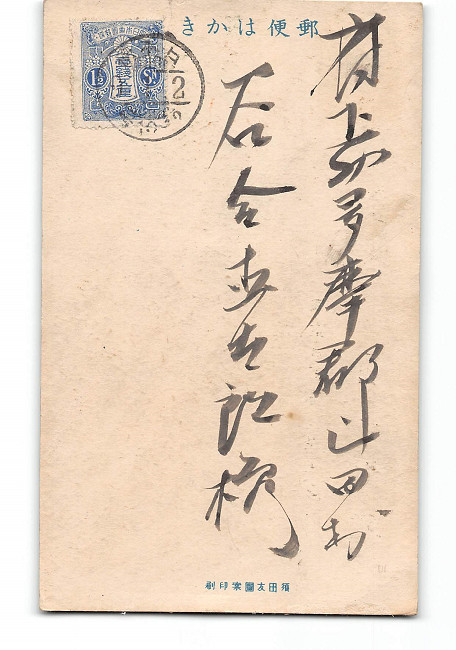 郵便はかき
府下南多摩郡町田村
石合郎様
1½ Sⁿ
壹錢五厘
2
須田友圖案印刷